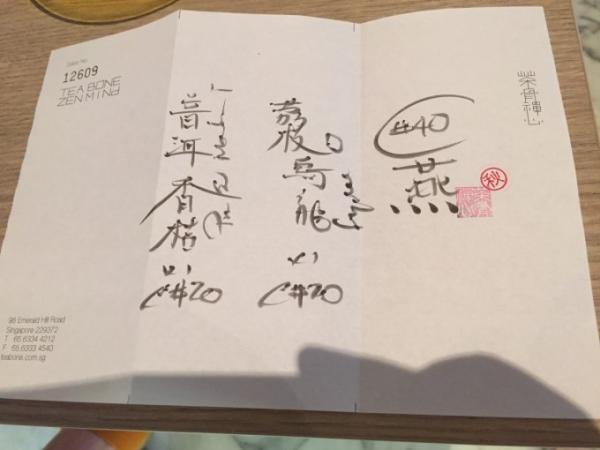 Sales No.
12609
TEA BONE
ZEN MIND
茶骨禅心
#40
燕
秋
荔枝烏龍
x1
#20
普洱香桔
x1
#20
98 Emerald Hill Road
Singapore 229372
T 65.6334 4212
F 65.6333 4540
teabone.com.sg